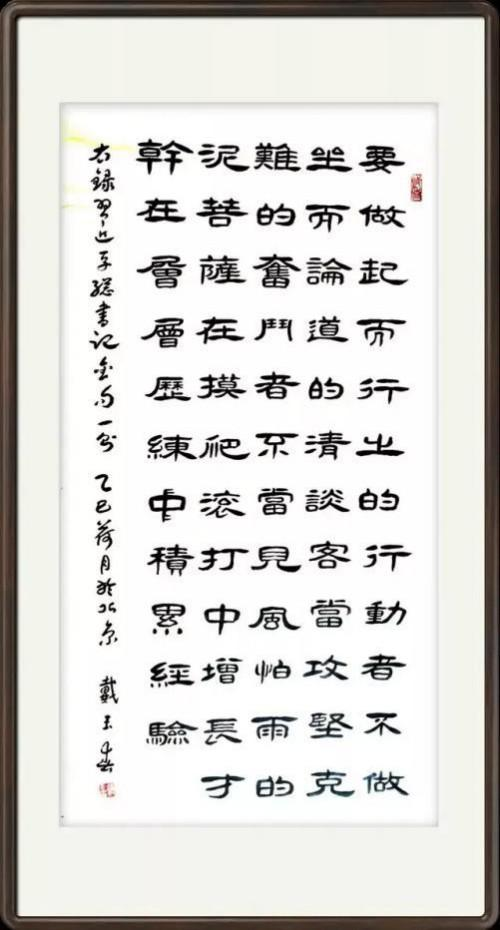 要做起而行之的行動者不做
坐而論道的清談客當攻堅克
難的奮鬥者不當見風怕雨的
泥菩薩在摸爬滾打中增長才
幹在層層歷練中積累經驗
右録習近平總書記金句一則 乙巳荷月於北京 戴玉春